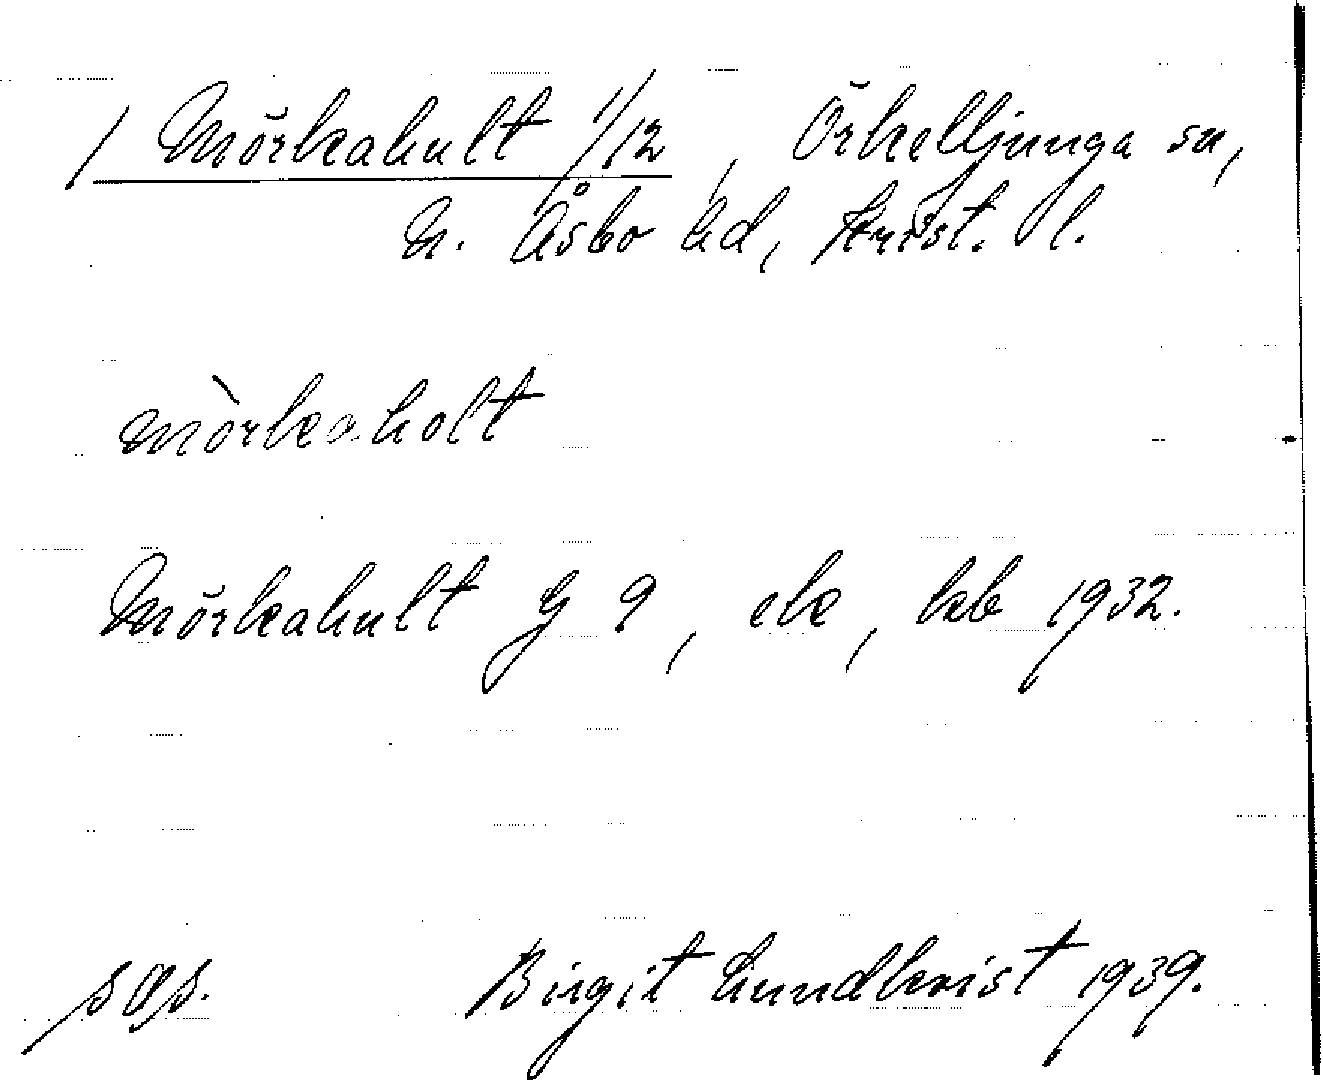 / Mörkahult 1/12, Örkelljunga sn,
N. Åsbo hd, Krist. l.
mòrkaholt
Mörkahult G 9, ek, kb 1932.
Birgit Lundkvist 1939.